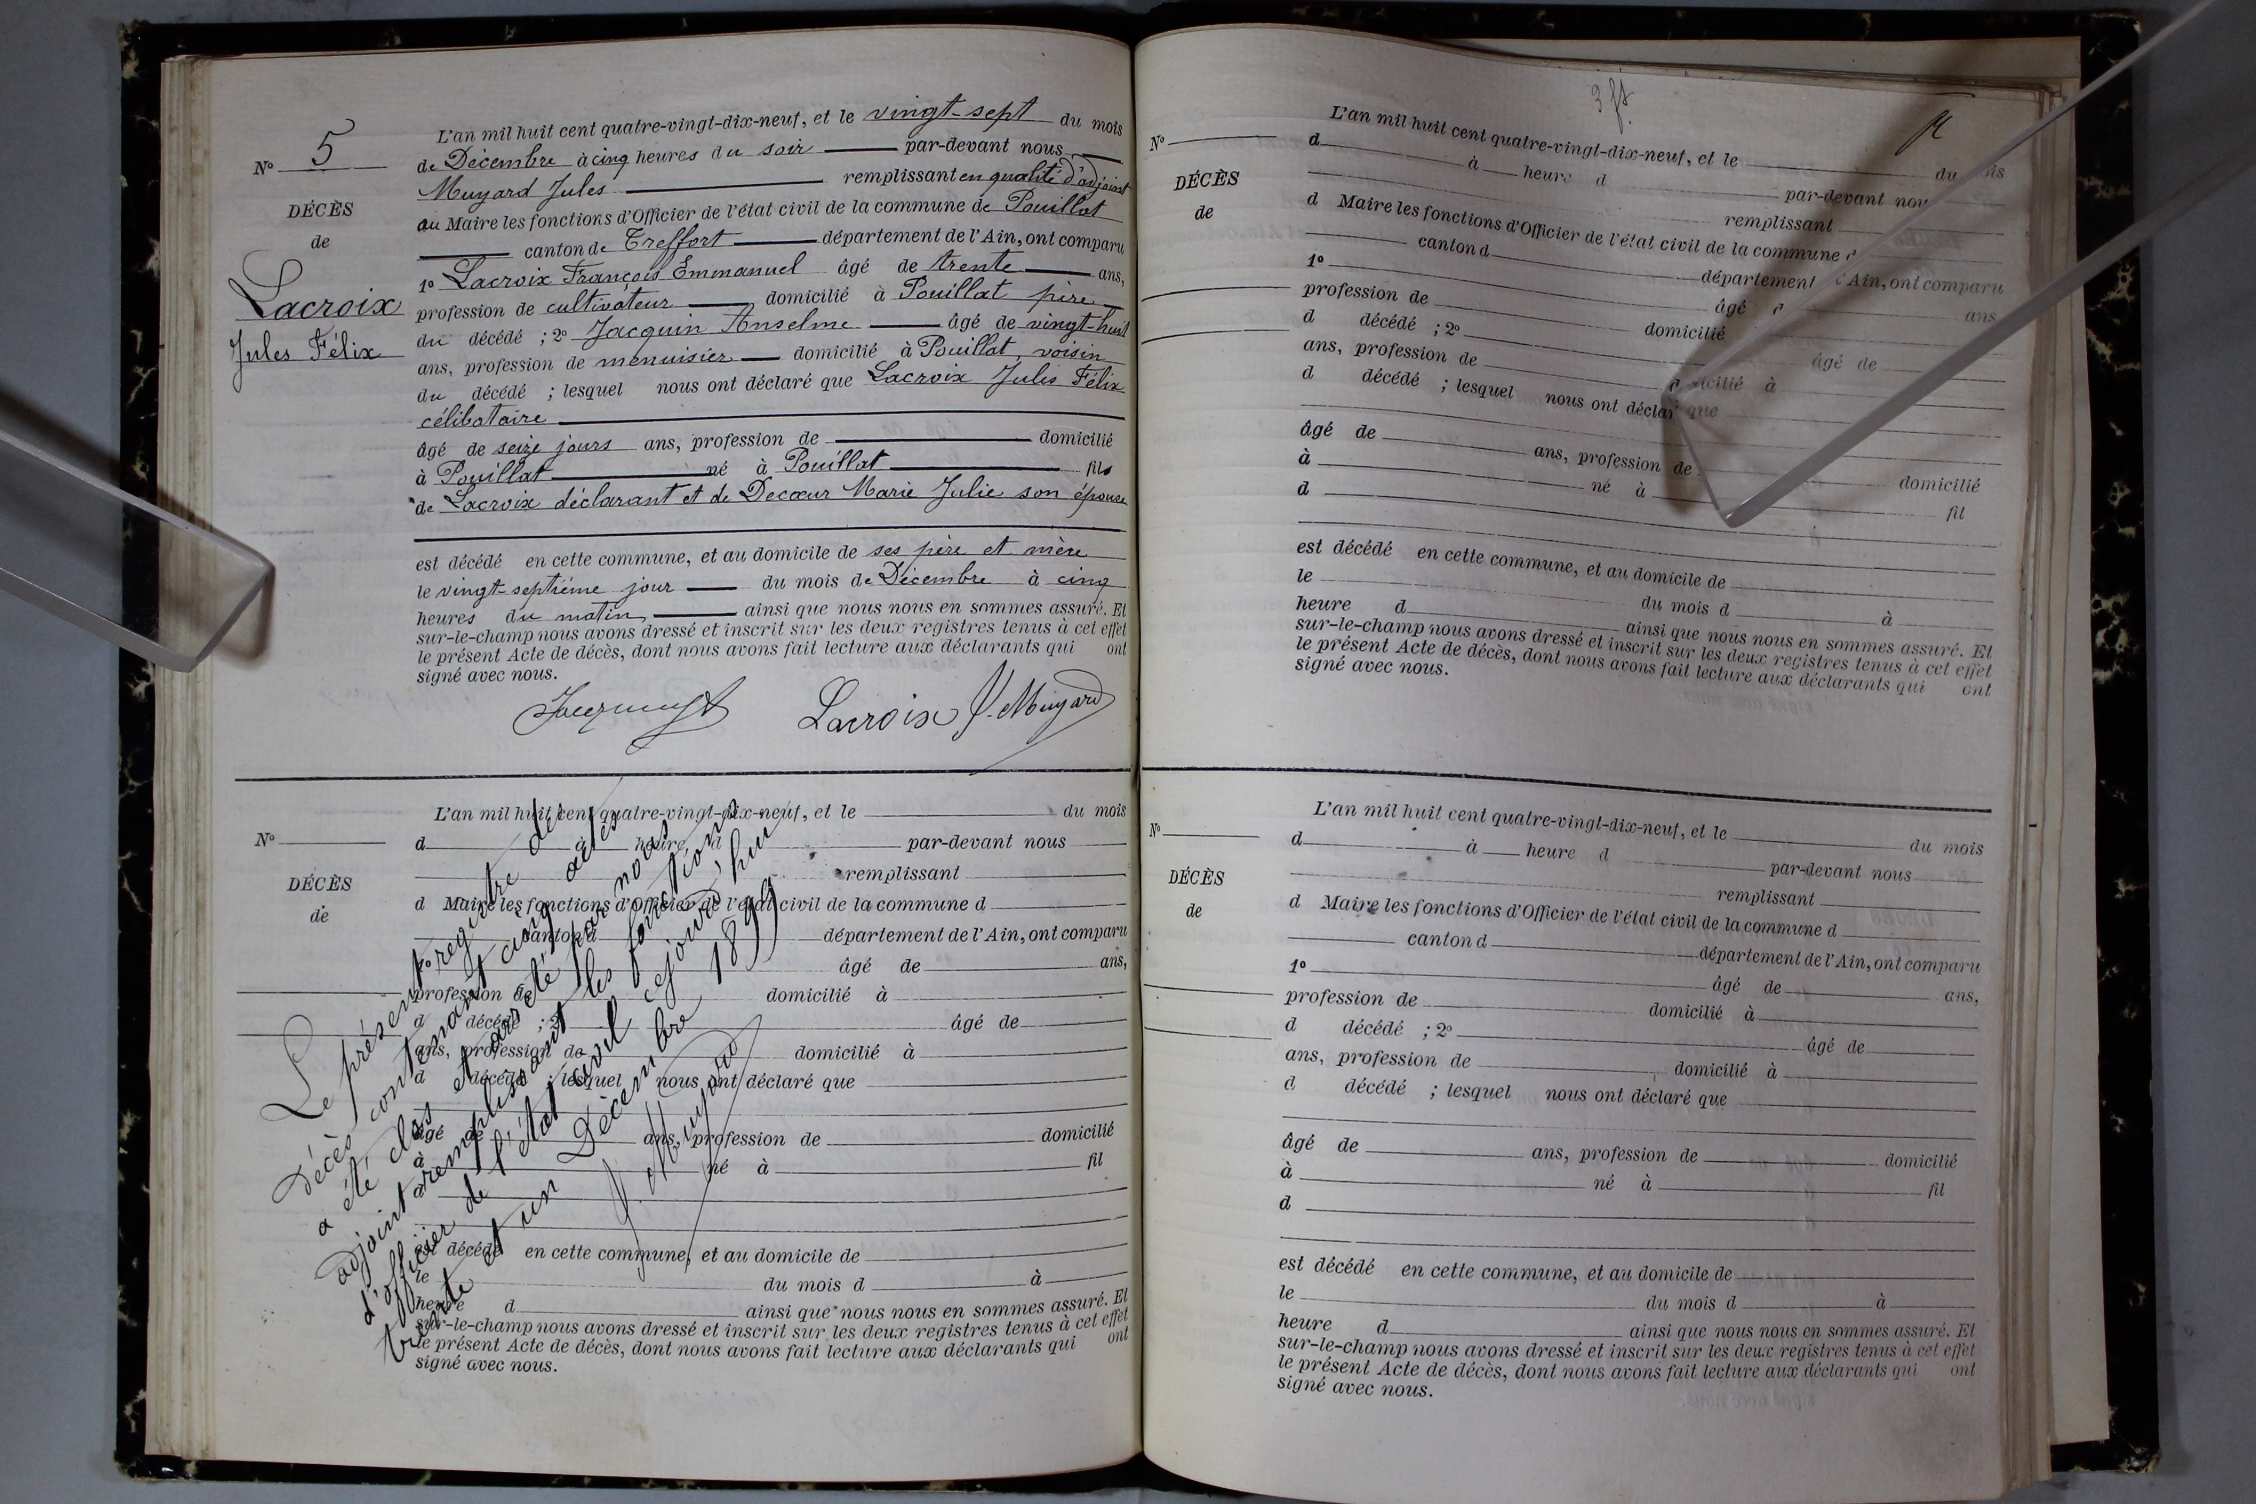 N° 5
DÉCÈS
de
Lacroix
Jules Félix
L'an mil huit cent quatre-vingt-dix-neuf, et le vingt-sept du mois
de Décembre à cinq heures du soir par-devant nous
Muyard Jules remplissant en qualité d'adjoint
au Maire les fonctions d'Officier de l'état civil de la commune de Pouillat
canton de Treffort département de l'Ain, ont comparu
1° Lacroix François Emmanuel âgé de trente ans,
profession de cultivateur domicilié à Pouillat père
du décédé ; 2° Jacquin Anselme âgé de vingt-huit
ans, profession de menuisier domicilié à Pouillat, voisin
du décédé ; lesquel nous ont déclaré que Lacroix Jules Félix
célibataire
âgé de seize jours ans, profession de domicilié
à Pouillat né à Pouillat fils
de Lacroix déclarant et de Decœur Marie Julie son épouse
est décédé en cette commune, et au domicile de ses père et mère
le vingt-septième jour du mois de Décembre à cinq
heures du matin, ainsi que nous nous en sommes assuré. Et
sur-le-champ nous avons dressé et inscrit sur les deux registres tenus à cet effet
le présent Acte de décès, dont nous avons fait lecture aux déclarants qui ont
signé avec nous.
Lacroix J. Muyard
N°
DÉCÈS
de
L'an mil huit cent quatre-vingt-dix-neuf, et le du mois
d à heure d par-devant nous
remplissant
d Maire les fonctions d'Officier de l'état civil de la commune d
canton d département de l'Ain, ont comparu
1° âgé de ans,
profession de domicilié à
d décédé ; 2° âgé de
ans, profession de domicilié à
d décédé ; lesquel nous ont déclaré que
âgé de ans, profession de domicilié
à né à fil
d
est décédé en cette commune, et au domicile de
le du mois d à
heure d ainsi que nous nous en sommes assuré. Et
sur-le-champ nous avons dressé et inscrit sur les deux registres tenus à cet effet
le présent Acte de décès, dont nous avons fait lecture aux déclarants qui ont
signé avec nous.
Le présent registre des
décès contenant cinq actes
a été clos et arrêté par nous
adjoint remplissant les fonctions
d'officier de l'état civil cejourd'hui
trente et un Décembre 1899
J. Muyard
N°
DÉCÈS
de
L'an mil huit cent quatre-vingt-dix-neuf, et le du mois
d à heure d par-devant nou
remplissant
d Maire les fonctions d'Officier de l'état civil de la commune
canton d département Ain, ont comparu
1° âgé ans
profession de domicilié
d décédé ; 2° âgé de
ans, profession de domicilié à
d décédé ; lesquel nous ont déclaré que
âgé de ans, profession de domicilié
à né à fil
d
est décédé en cette commune, et au domicile de
le du mois d à
heure d ainsi que nous nous en sommes assuré. Et
sur-le-champ nous avons dressé et inscrit sur les deux registres tenus à cet effet
le présent Acte de décès, dont nous avons fait lecture aux déclarants qui ont
signé avec nous.
N°
DÉCÈS
de
L'an mil huit cent quatre-vingt-dix-neuf, et le du mois
d à heure d par-devant nous
remplissant
d Maire les fonctions d'Officier de l'état civil de la commune d
canton d département de l'Ain, ont comparu
1° âgé de ans,
profession de domicilié à
d décédé ; 2° âgé de
ans, profession de domicilié à
d décédé ; lesquel nous ont déclaré que
âgé de ans, profession de domicilié
à né à fil
d
est décédé en cette commune, et au domicile de
le du mois d à
heure d ainsi que nous nous en sommes assuré. Et
sur-le-champ nous avons dressé et inscrit sur les deux registres tenus à cet effet
le présent Acte de décès, dont nous avons fait lecture aux déclarants qui ont
signé avec nous.